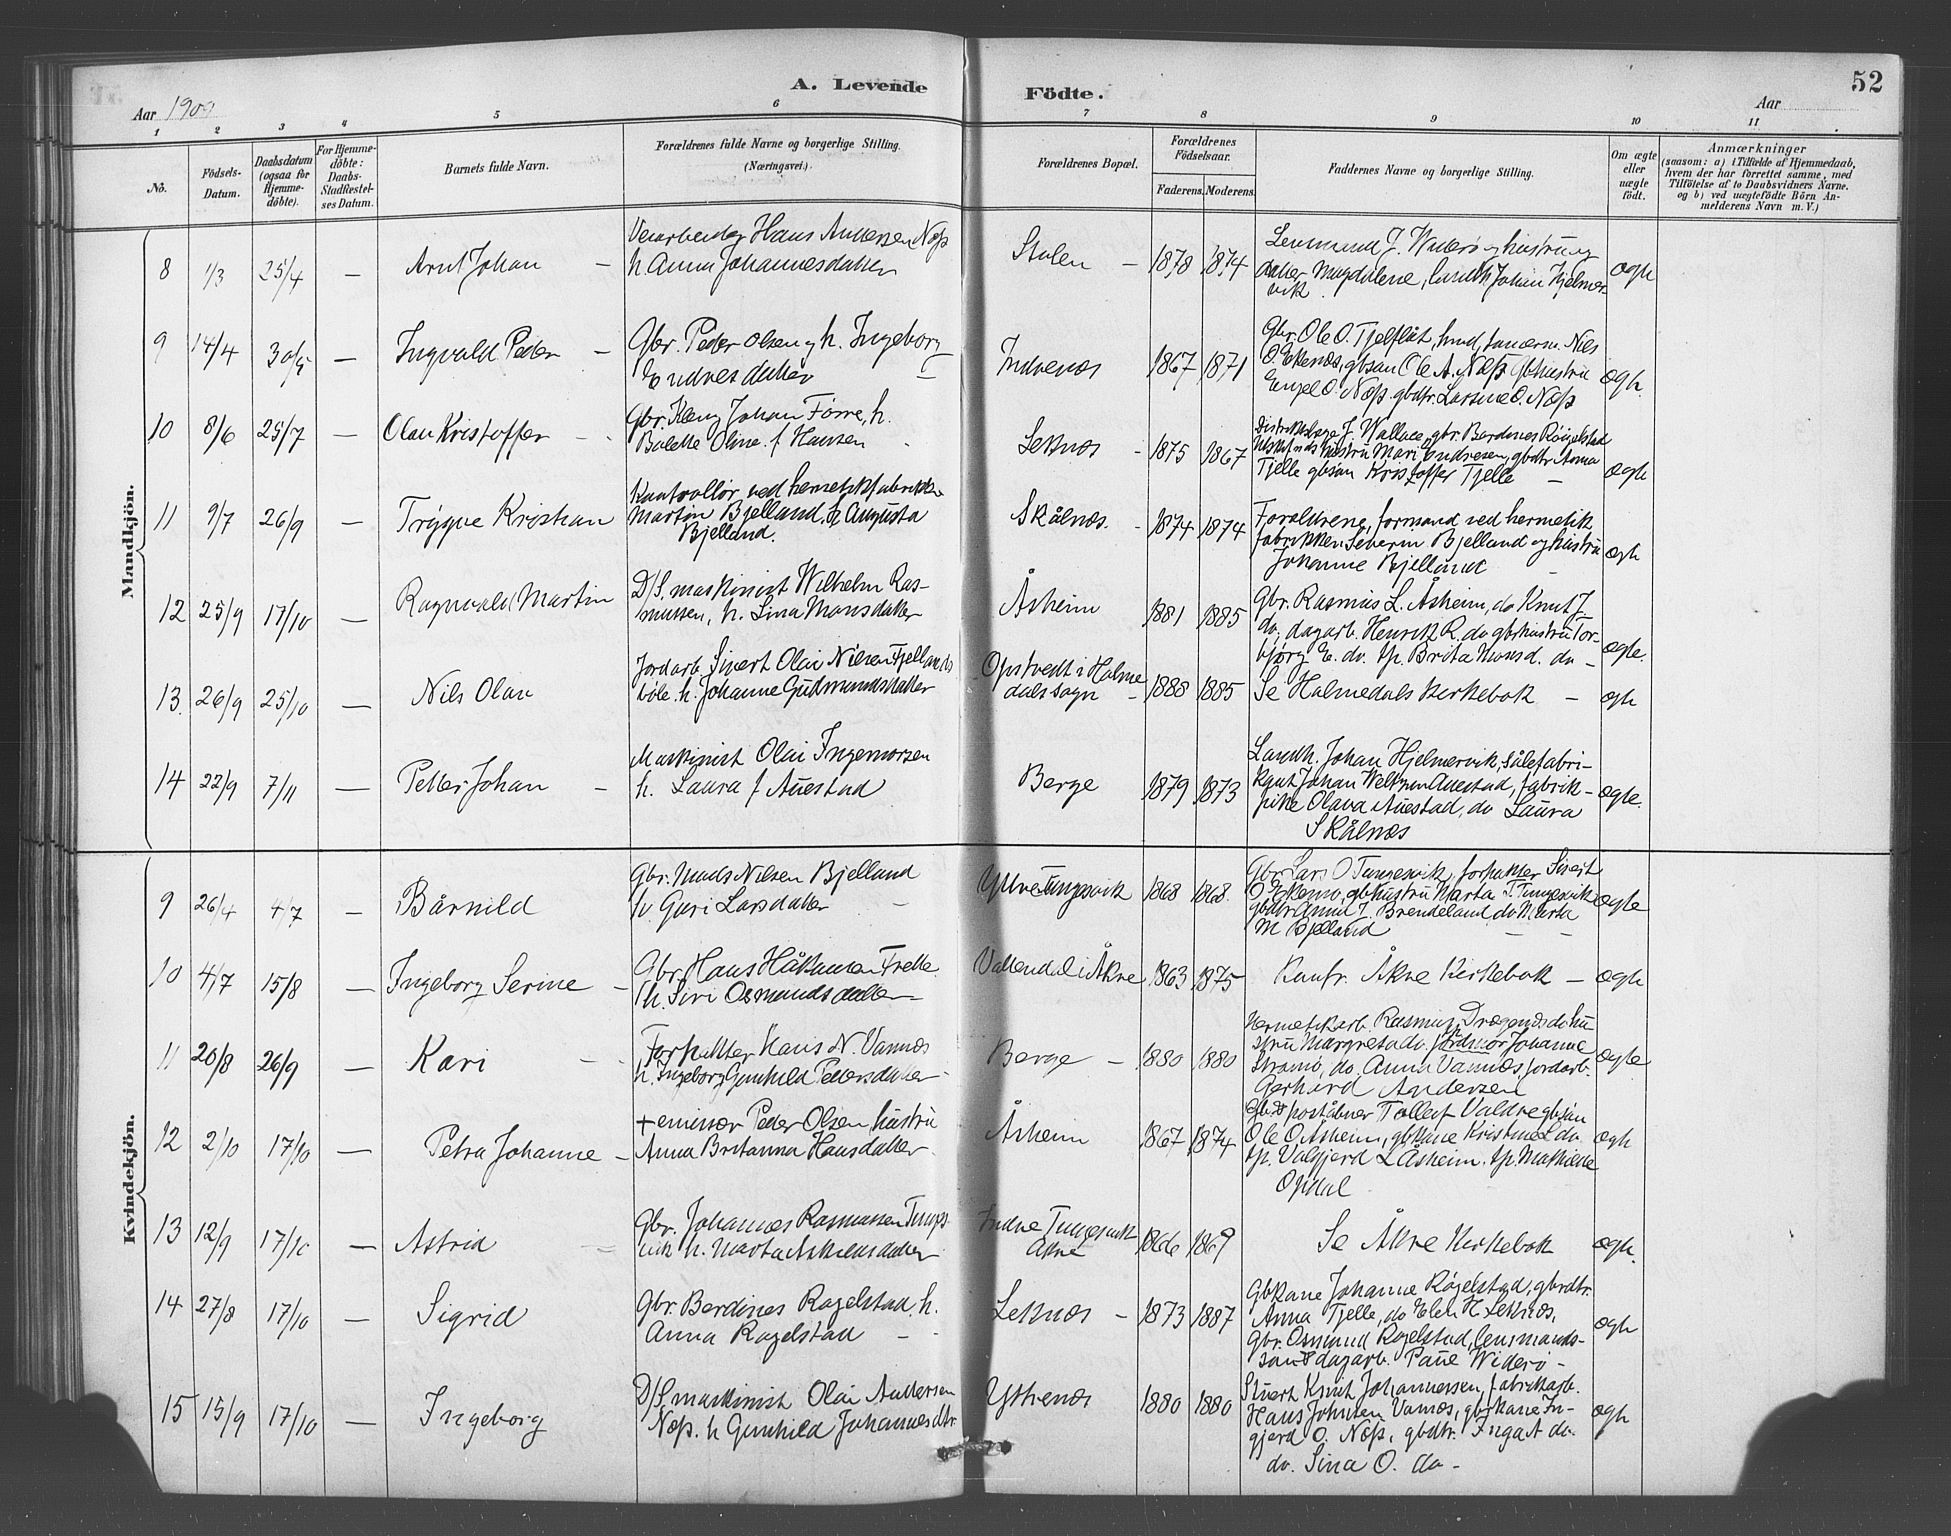 A. Levende
Födte.
52
Aar 1909
Aar
1 2 3 4 5 6 7 8 9 10 11
No.
Födsels-
Datum.
Daabsdatum
(ogsaa for
Hjemme-
döbte).
For Hjemme-
döbte:
Daabs-
Stadfæstel-
ses Datum.
Barnets fulde Navn.
Forældrenes fulde Navne og borgerlige Stilling.
(Næringsvei.)
Forældrenes Bopæl.
Forældrenes
Födselsaar.
Faderens. Moderens.
Faddernes Navne og borgerlige Stilling.
Om ægte
eller
uægte
födt.
Anmærkninger
(saasom: a) i Tilfælde af Hjemmedaab,
hvem der har forrettet samme, med
Tilföielse af to Daabsvidners Navne.
og b) ved uægtefödte Börn An-
melderens Navn m. V.)
Mandkjön.
8 1/3 25/4 — Arnt Johan —
Hans Andersen Næss
h. Anna Johannesdatter
Stolen — 1878 1874
Lensmand J. Widerø og hustru og
datter Magdalene, landh. Johan Hjelmer-
vik
ægte
9 14/4 30/5 — Ingvald Peder —
Gbr. Peder Olsen og h. Ingeborg
Endresdatter —
Indrenæs 1867 1871
Gbr. Ole O. Tjelflåt, Nils
O. Ekenæs, gbsøn Ole A. Næss, gbhustru
Engel O. Næss, gbdtr. Larsine O. Næss
ægte
10 8/6 25/7 — Olau Kristoffer
Gbr. Johan Førre, h.
Bolette Oline f. Hansen
Leknæs - 1875 1867
Distriktslæge J. Wallace, gbr. Bardines Røigelstad
hustru Mari Endresen, gbdtr. Anna
Tjelle gbsøn Kristoffer Tjelle —
ægte
11 9/7 26/9 — Trygve Kristian
Kontrollør ved hermetikfabrikken
Martin Bjelland, h. Augusta
Bjelland.
Skålnæs. - 1874 1874
Forældrene, formand ved hermetik
fabrikken Severin Bjelland og hustru
Johanne Bjelland
ægte
12 25/9 17/10 — Ragnvald Martin
D/S. maskinist Wilhelm Ras-
mussen, h. Sina Monsdatter
Åsheim 1881 1885
Gbr. Rasmus L. Åsheim, do Knut J.
do, dagarb. Henrik R. do gbhustru Tor-
bjørg E. do. tp. Brita Monsd. do —
ægte.
13. 26/9 25/10 — Nils Olau
Jordarb. Sivert Olai Nilsen Fjellands
bøle. h. Johanne Gudmundsdatter
Opstvedt i Holme
dals sogn — 1888 1885
Se Holmedals kirkebok —
ægte
14 22/9 7/11 — Petter Johan —
Maskinist Olai Ingemorsen
h. Laura f. Auestad
Berge 1879 1873
Landh. Johan Hjelmervik, sålefabri-
kant Johan Auestad, fabrik-
pike Olava Auestad, do Laura
Skålnæs
ægte.
Kvindekjön.
9 26/4 4/7 — Bårnild
Gbr. Mads Nilsen Bjelland
h. Guri Larsdatter —
Yttre Tungesvik 1868 1868.
Gbr. Lars O Tungesvik, forpakter Sivert
O Ekemo, gbhustru Marta T. Tungesvik
gbdtr. Anna J. Brendeland do Marta
M Bjelland — —
ægte
10 4/7 15/8 — Ingeborg Serine —
Gbr. Hans Håkansen Frette
h. Siri Osmundsdatter —
Vallendal i Åkre 1863 1875
Konfr. Åkre Kirkebok —
ægte
11 20/8 26/9 — Kari
Forpakter Hans N. Vannes
h. Ingeborg Gunhild Pettersdatter
Berge — 1880 1880
Hermetikarb. Rasmus Drægenes do hu-
stru Margreta do. Jordmor Johanne
Stramø, do. Anna Vannes, jordarb.
Gerhard Andersen
ægte
12 2/10 17/10 — Petra Johanne —
+ emissær Peder Olsen, hustru
Anna Britanna Hansdatter.
Åsheim 1867 1874
Gbr. & poståbner Tollef Valdre gbsøn
Ole O. Åsheim, gbkone Kristine L do.
tp. Valgjerd L Åsheim. tp. Mathilde
Opdal
ægte
13 12/9 17/10 — Astrid
Gbr. Johannes Rasmussen Tunges-
vik h. Marta Askildsdatter
Indre Tungesvik
Åkre 1866 1869
Se Åkre Kirkebok
ægte.
14 27/8 17/10 — Sigrid
Gbr. Berdines Røgelstad, h.
Anna Røgelstad — -
Leknæs — 1873 1887
Gbkone Johanne Røgelstad, gbrdtr.
Anna Tjelle, do Elen H. Leknæs,
Gbr. Osmund Røgelstad, lensmands-
søn & dagarb. Paul Widerø —
ægte
15 15/9 17/10 — Ingeborg
D/S. maskinist Olai Andersen
Næss. h Gunhild Johannesdtr.
Yttrenæs 1880 1880
Stuert Knut Johannessen, fabrikarb.
Hans Johnsen Vannes, gbrkone In-
gjerd O. Næss, gbdtr. Inga A do.
do. Sina O. do —
ægte